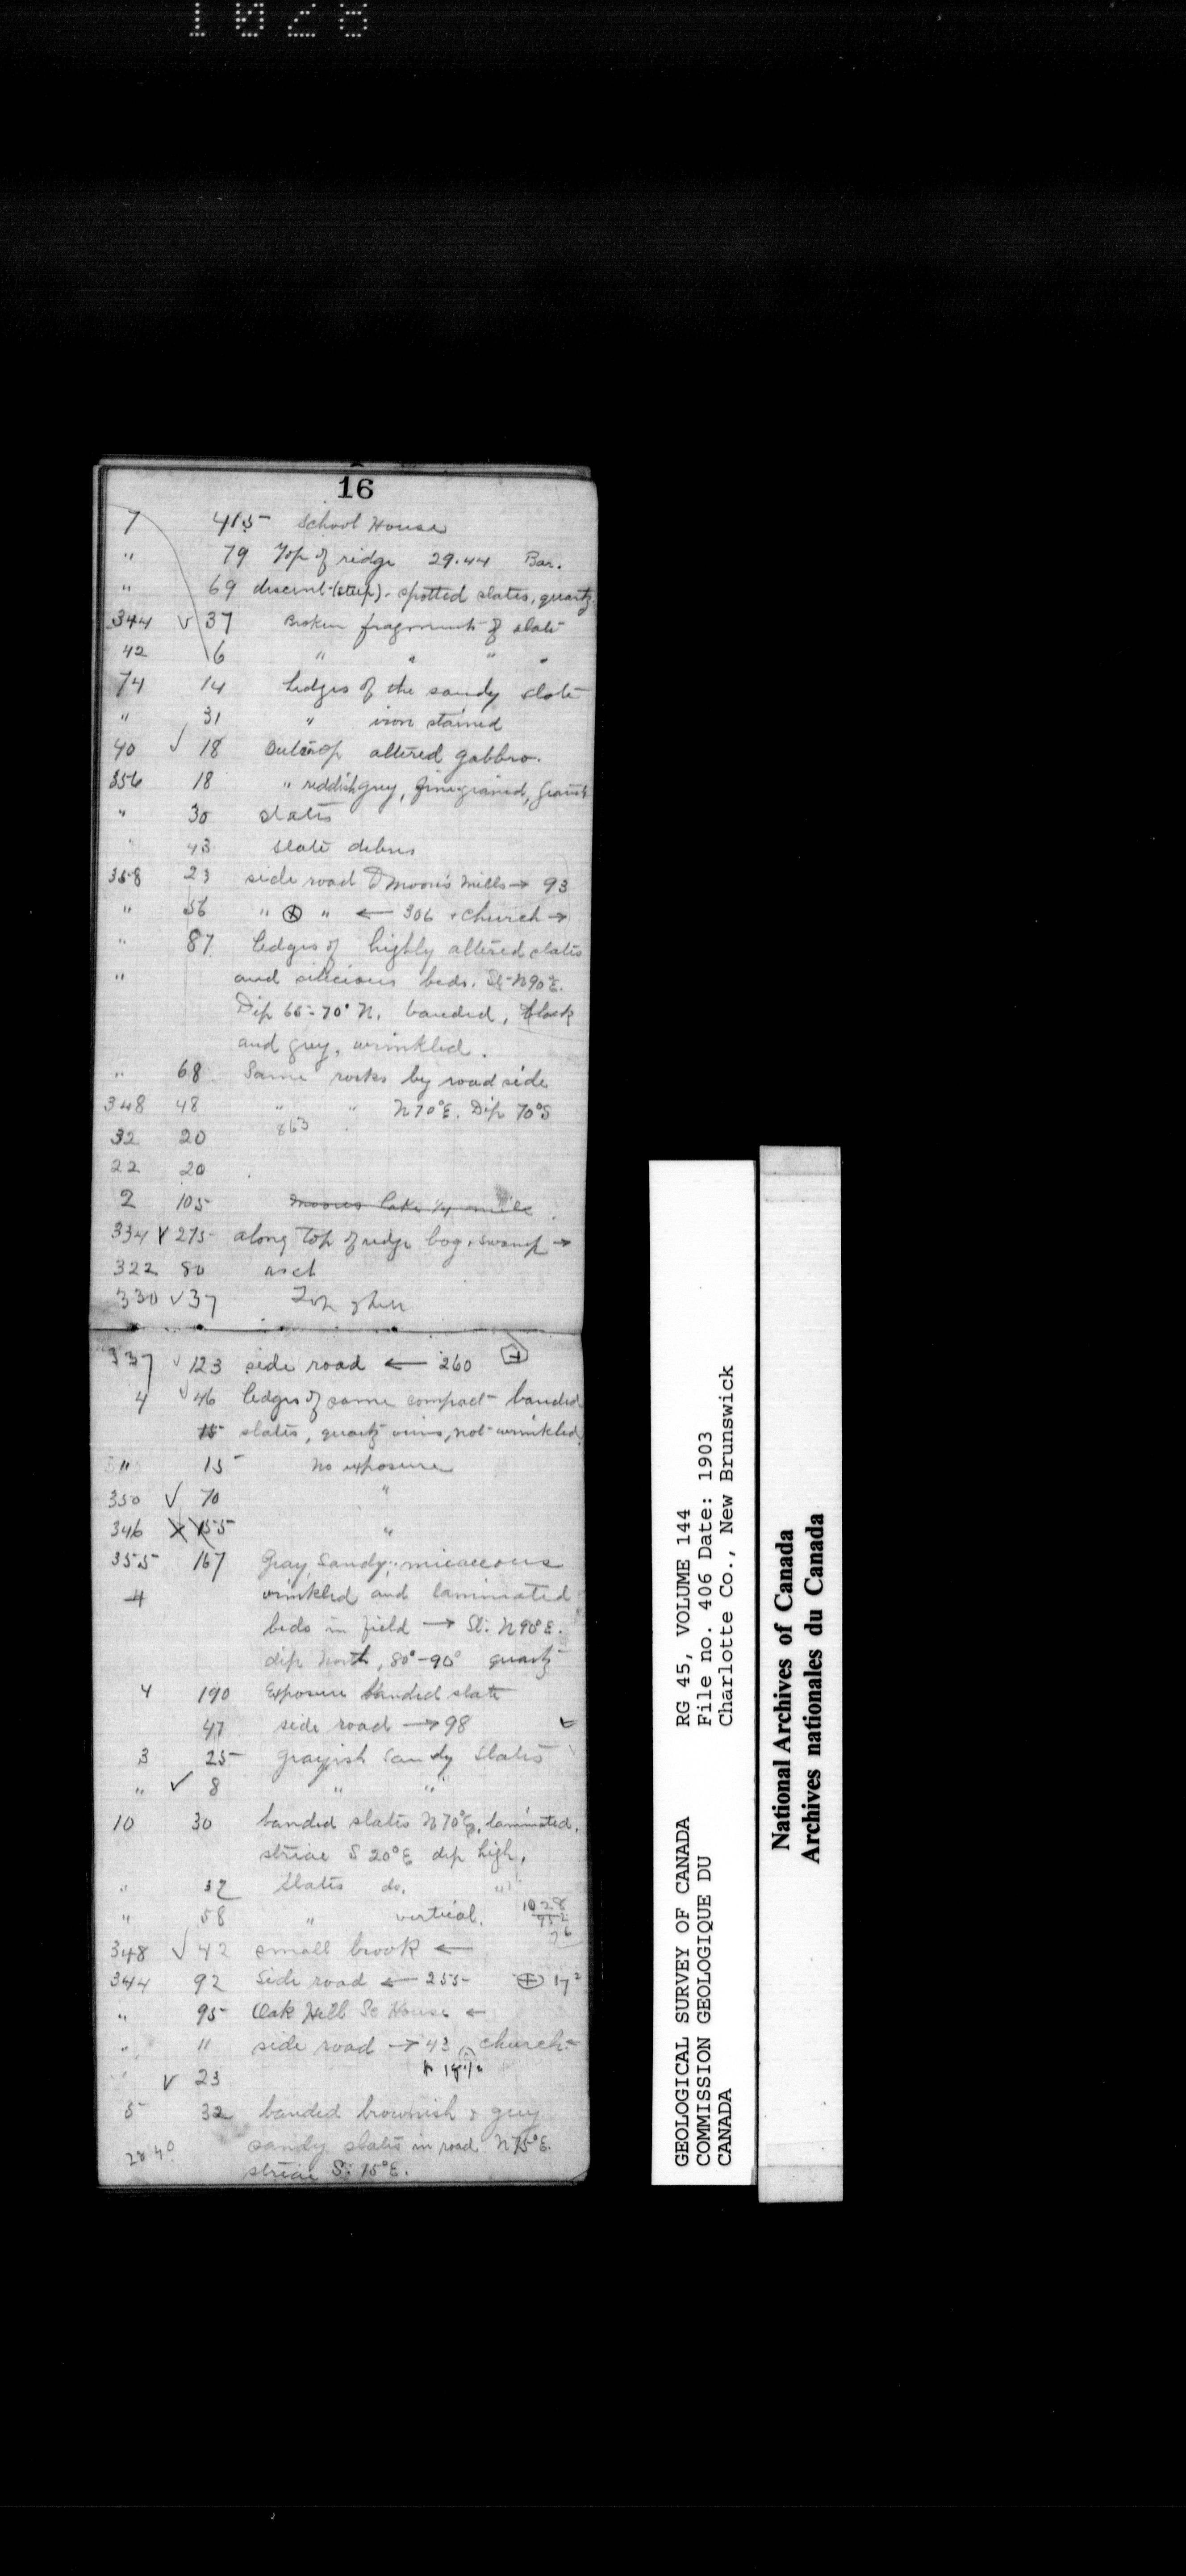 1028
16
7 415 School House
" 79 Top of ridge 29.44 Bar.
" 69 descent (steep). spotted slates, quartz
344 √ 37 Broken fragments of slate
42 6 " " " "
74 14 Ledges of the sandy slate
" 31 " iron stained
40 √ 18 Outcrop altered gabbro.
356 18 " reddish grey, fine-grained, granite
" 30 slates
" 43 slate debris
358 23 side road Moore's Mills → 93
" 56 " ⊗ " ← 306 + church →
" 87 ledges of highly altered slates
" and silicious beds. St. N90°E.
Dip 65-70° N. banded, black
and grey, wrinkled.
" 68 Same rocks by road side
348 48 " " N70°E. Dip 70°S
32 20 863
22 20
2 105 Moores lake 1/4 mile
334 √ 275 along top of ridge bog & swamp →
322 80
330 √ 37 Top of hill
337 √ 123 side road ← 260
4 √ 46 ledges of same compact banded
15 slates, quartz veins, not wrinkled.
" 15 no exposure
350 √ 70 "
346 X 155 "
355 167 Gray, Sandy, micaceous
4 wrinkled and laminated
beds in field → St. N90°E.
dip North, 80°-90° quartz
4 190 Exposure banded slate
47 side road → 98
3 25 grayish Sandy Slates
" √ 8 " "
10 30 banded slates N70°E, laminated.
striae S 20°E dip high.
" 37 Slates do. "
" 58 " vertical.
1028
952
76
348 √ 42 small brook ←
344 92 Side road ← 255 ⊕ 17²
" 95 Oak Hill Sc House ←
" 11 side road → 43, church ←
" √ 23
5 32 banded brownish & grey
sandy slates in road N75°E.
striae S. 15°E.
GEOLOGICAL SURVEY OF CANADA
COMMISSION GEOLOGIQUE DU
CANADA
RG 45, VOLUME 144
File no. 406 Date: 1903
Charlotte Co., New Brunswick
National Archives of Canada
Archives nationales du Canada